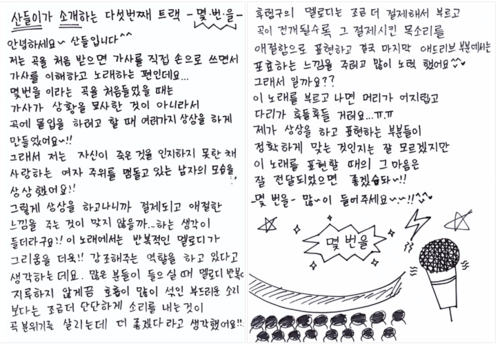 산들이가 소개하는 다섯번째 트랙 -몇·번·을-
안녕하세요~ 산들입니다^^
저는 곡을 처음 받으면 가사를 직접 손으로 쓰면서
가사를 이해하고 노래하는 편인데요...
몇번을이라는 곡을 처음들었을 때는
가사가 상황을 묘사한 것이 아니라서
곡에 몰입을 하려고 할 때 여러가지 상상을 하게
만들었어요!!
그래서 저는 자신이 죽은 것을 인지하지 못한 채
사랑하는 여자 주위를 맴돌고 있는 남자의 모습을
상상했어요!
그렇게 상상을 하고나니까 절제되고 애절한
느낌을 주는 것이 맞지 않을까...하는 생각이
들더라구요!! 이 노래에서는 반복적인 멜로디가
그리움을 더욱!! 강조해주는 역할을 하고 있다고
생각하는데요.. 많은 분들이 들으실 때 멜로디 반복이
지루하지 않게끔 호흡이 많이 섞인 부드러운 소리
보다는 조금더 단단하게 소리를 내는것이
곡분위기를 살리는데 더 좋겠다라고 생각했어요!!
후렴구의 멜로디는 조금 더 절제해서 부르고
곡이 전개될수록 그 절제시킨 목소리를
애절함으로 표현하고 결국 마지막 애드리브 부분에서는
포효하는 느낌을 주려고 많이 노력 했어요
그래서 일까요??
이 노래를 부르고 나면 머리가 어지럽고
다리가 후들후들 거려요...ㅠ.ㅠ
제가 상상을 하고 표현하는 부분들이
정확하게 맞는 것인지는 잘 모르겠지만
이 노래를 표현할 때의 그 마음은
잘 전달되었으면 좋겠습돠~!!
-몇 번을- 많~이 들어주세요~~!!^^
몇번을